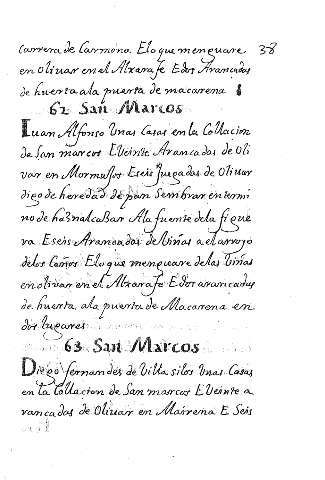 Carrera de Carmona. E lo que menguare 38
en Olivar en el Alxarafe E dos Arançadas
de huerta a la puerta de macarena
62 San Marcos
Iuan Alfonso Unas Casas en la Collacion
de San marcos E Veinte Arancadas de Oli
var en Mormusos E seis Jugadas de Olivar
digo de heredad de pan Sembrar en termi
no de haznalcaBar A la fuente de la figue
va E seis Arancadas de Viñas a el arroyo
de los Caños E lo que menguare de las Viñas
en olivar en el Alxarafe E dos arancadas
de huerta a la puerta de Macarena en
dos lugares
63 San Marcos
Diego fernandes de Villa silos Unas Casas
en la Collacion de San marcos E Veinte a
rancadas de Olivar en Mairena E Seis